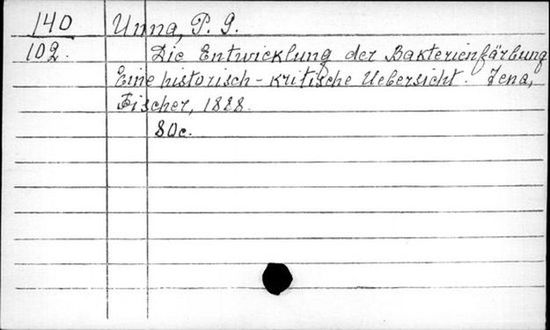 140 Unna, P. G.
102. Die Entwicklung der Bakterienfärbung
Eine historisch-kritische Uebersicht. Jena,
Fischer, 1888.
8Oc.